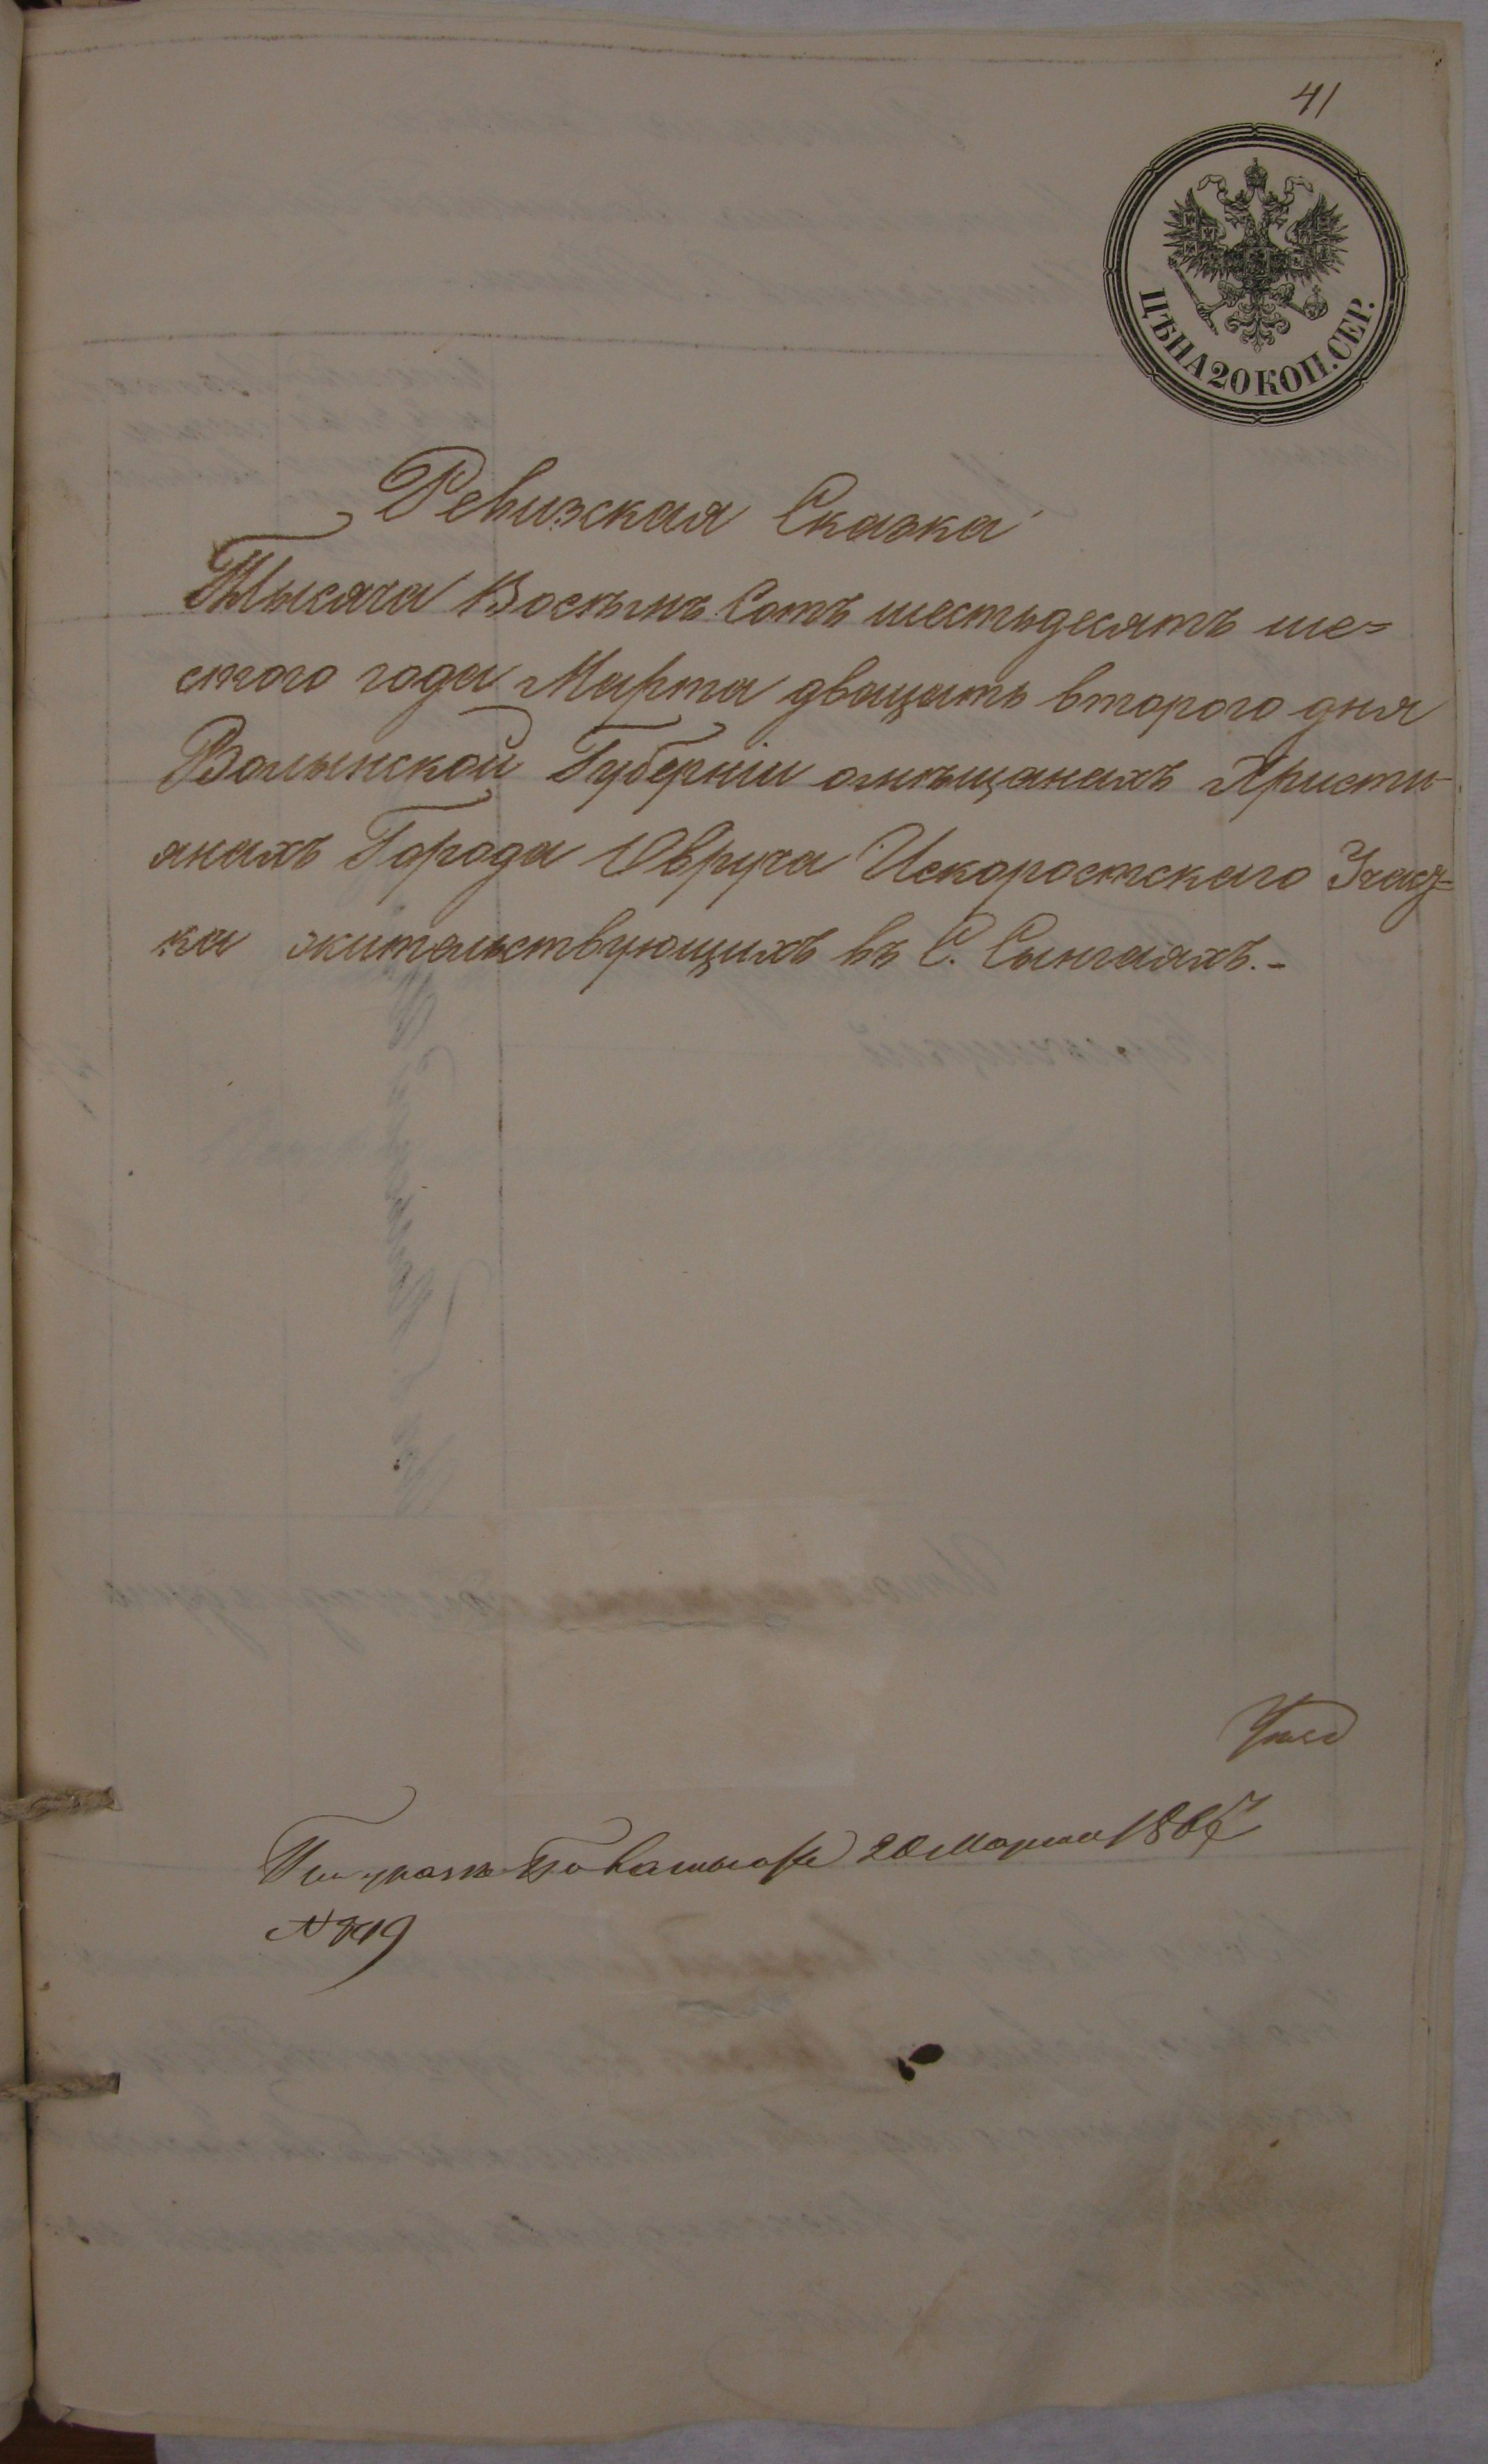 41
ЦѢНА 20 КОП. СЕР.
Ревизская Сказка
Тысяча Восѣмъ Сотъ шестьдесятъ ше=
стого года Марта двацать второго дня
Волынской Губерніи омѣщанахъ Христи-
янахъ Города Овруча Искоростского Участ=
ка жительствующихъ въ С. Сынгаяхъ.-
20 Марта
№